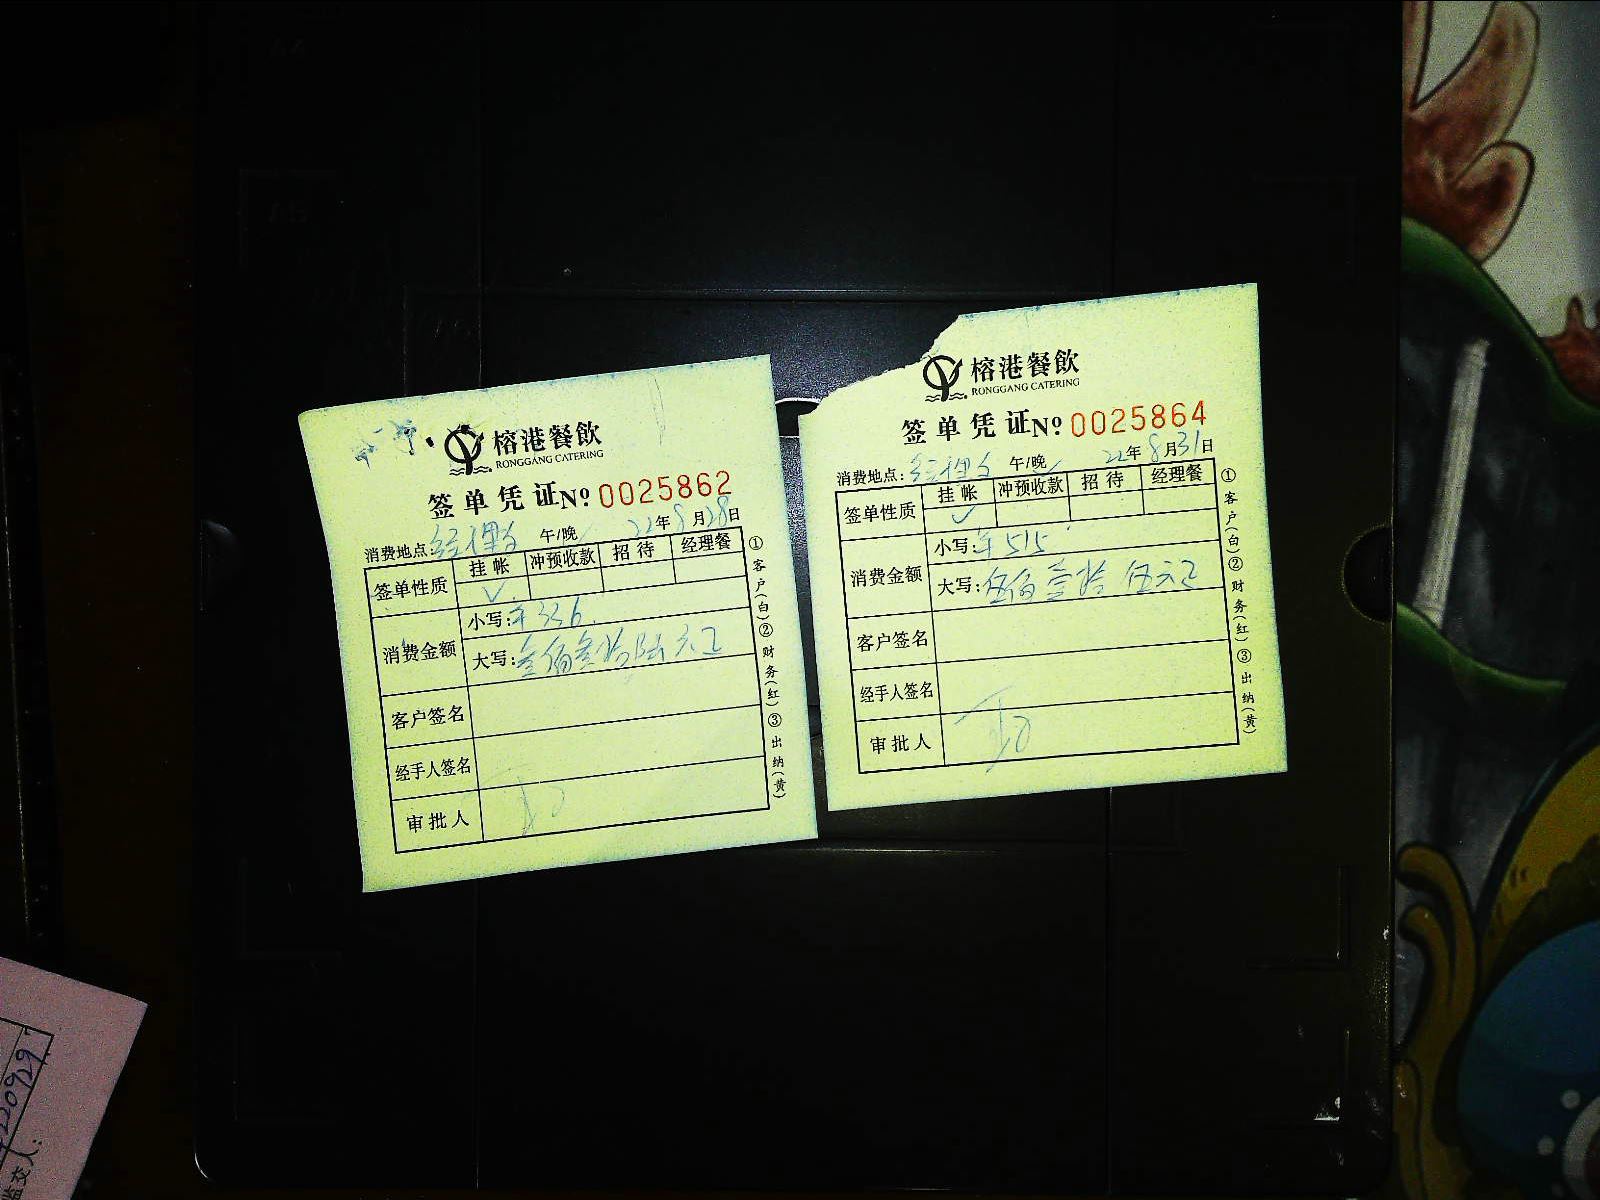 榕港餐飲
RONGGANG CATERING
签单凭证 № 0025862
消费地点: 午/晚 22年8月28日
签单性质 挂帐 冲预收款 招待 经理餐
✓
消费金额 小写:¥336.
大写:叁佰叁拾陆元正
客户签名
经手人签名
审批人
①客户(白)②财务(红)③出纳(黄)
榕港餐飲
RONGGANG CATERING
签单凭证 № 0025864
消费地点: 午/晚 22年8月31日
签单性质 挂帐 冲预收款 招待 经理餐
✓
消费金额 小写:¥515
大写:伍佰壹拾伍元正
客户签名
经手人签名
审批人
①客户(白)②财务(红)③出纳(黄)
220929
监交人: